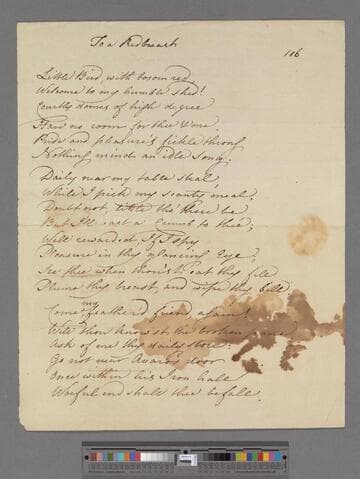 To a Redbreast
106
Little Bird, with bosom red,
Welcome to my humble shed!
Courtly domes of high degree
Have no room for thee & me
Pride and pleasure's fickle throng
Nothing mind an idle song;
Daily near my table steal,
While I pick my scanty meal,
Doubt not, little tho' there be
But I'll cast a crumb to thee;
Well rewarded, If I spy
Pleasure in thy glancing Eye;
See thee when thou'st eat thy fill
Plume thy breast, and wipe thy bill
my
Come, feather'd friend, again!
Well thou know'st the broken pane
Ask of me thy daily store;
Go not near Avaro's door
Once within his Iron hall
Woful end shall thee befall.